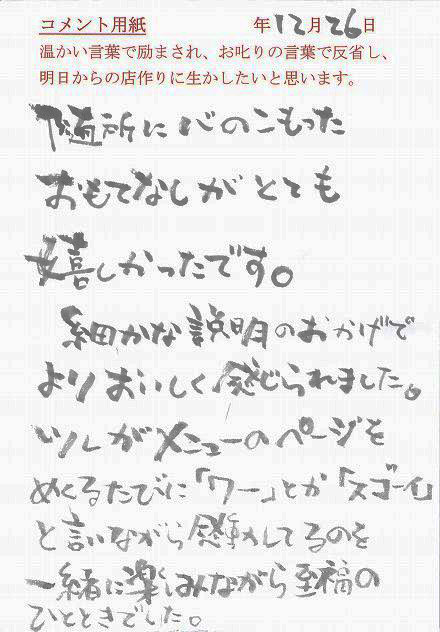 コメント用紙 年12月26日
温かい言葉で励まされ、お叱りの言葉で反省し、
明日からの店作りに生かしたいと思います。
随所に心のこもった
おもてなしがとても
嬉しかったです。
細かな説明のおかげで
よりおいしく感じられました。
ツレがメニューのページを
めくるたびに「ワー」とか「スゴーイ」
と言いながら感動してるのを
一緒に楽しみながら至福の
ひとときでした。